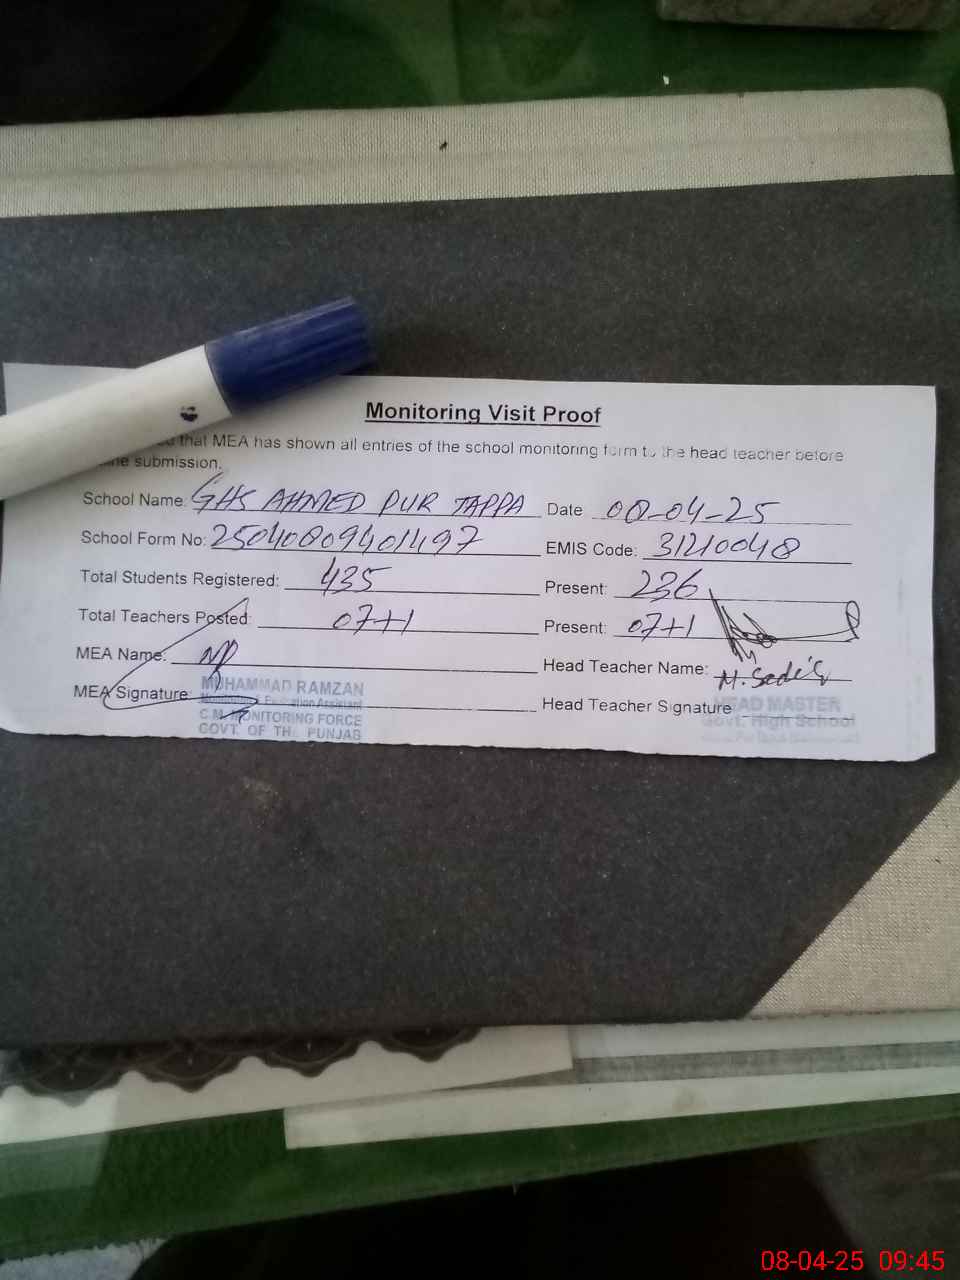 Monitoring Visit Proof
that MEA has shown all entries of the school monitoring form to the head teacher before
submission.
School Name: GHS AHMED PUR TAPPA Date 08-04-25
School Form No: 25040809401497 EMIS Code: 31210048
Total Students Registered: 435 Present: 236
Total Teachers Posted: 07+1 Present: 07+1
MEA Name: Head Teacher Name: M. Sadiq
MEA Signature: Head Teacher Signature
MUHAMMAD RAMZAN
Monitoring & Evaluation Assistant
C.M. MONITORING FORCE
GOVT. OF THE PUNJAB
HEAD MASTER
Govt. High School
08-04-25 09:45